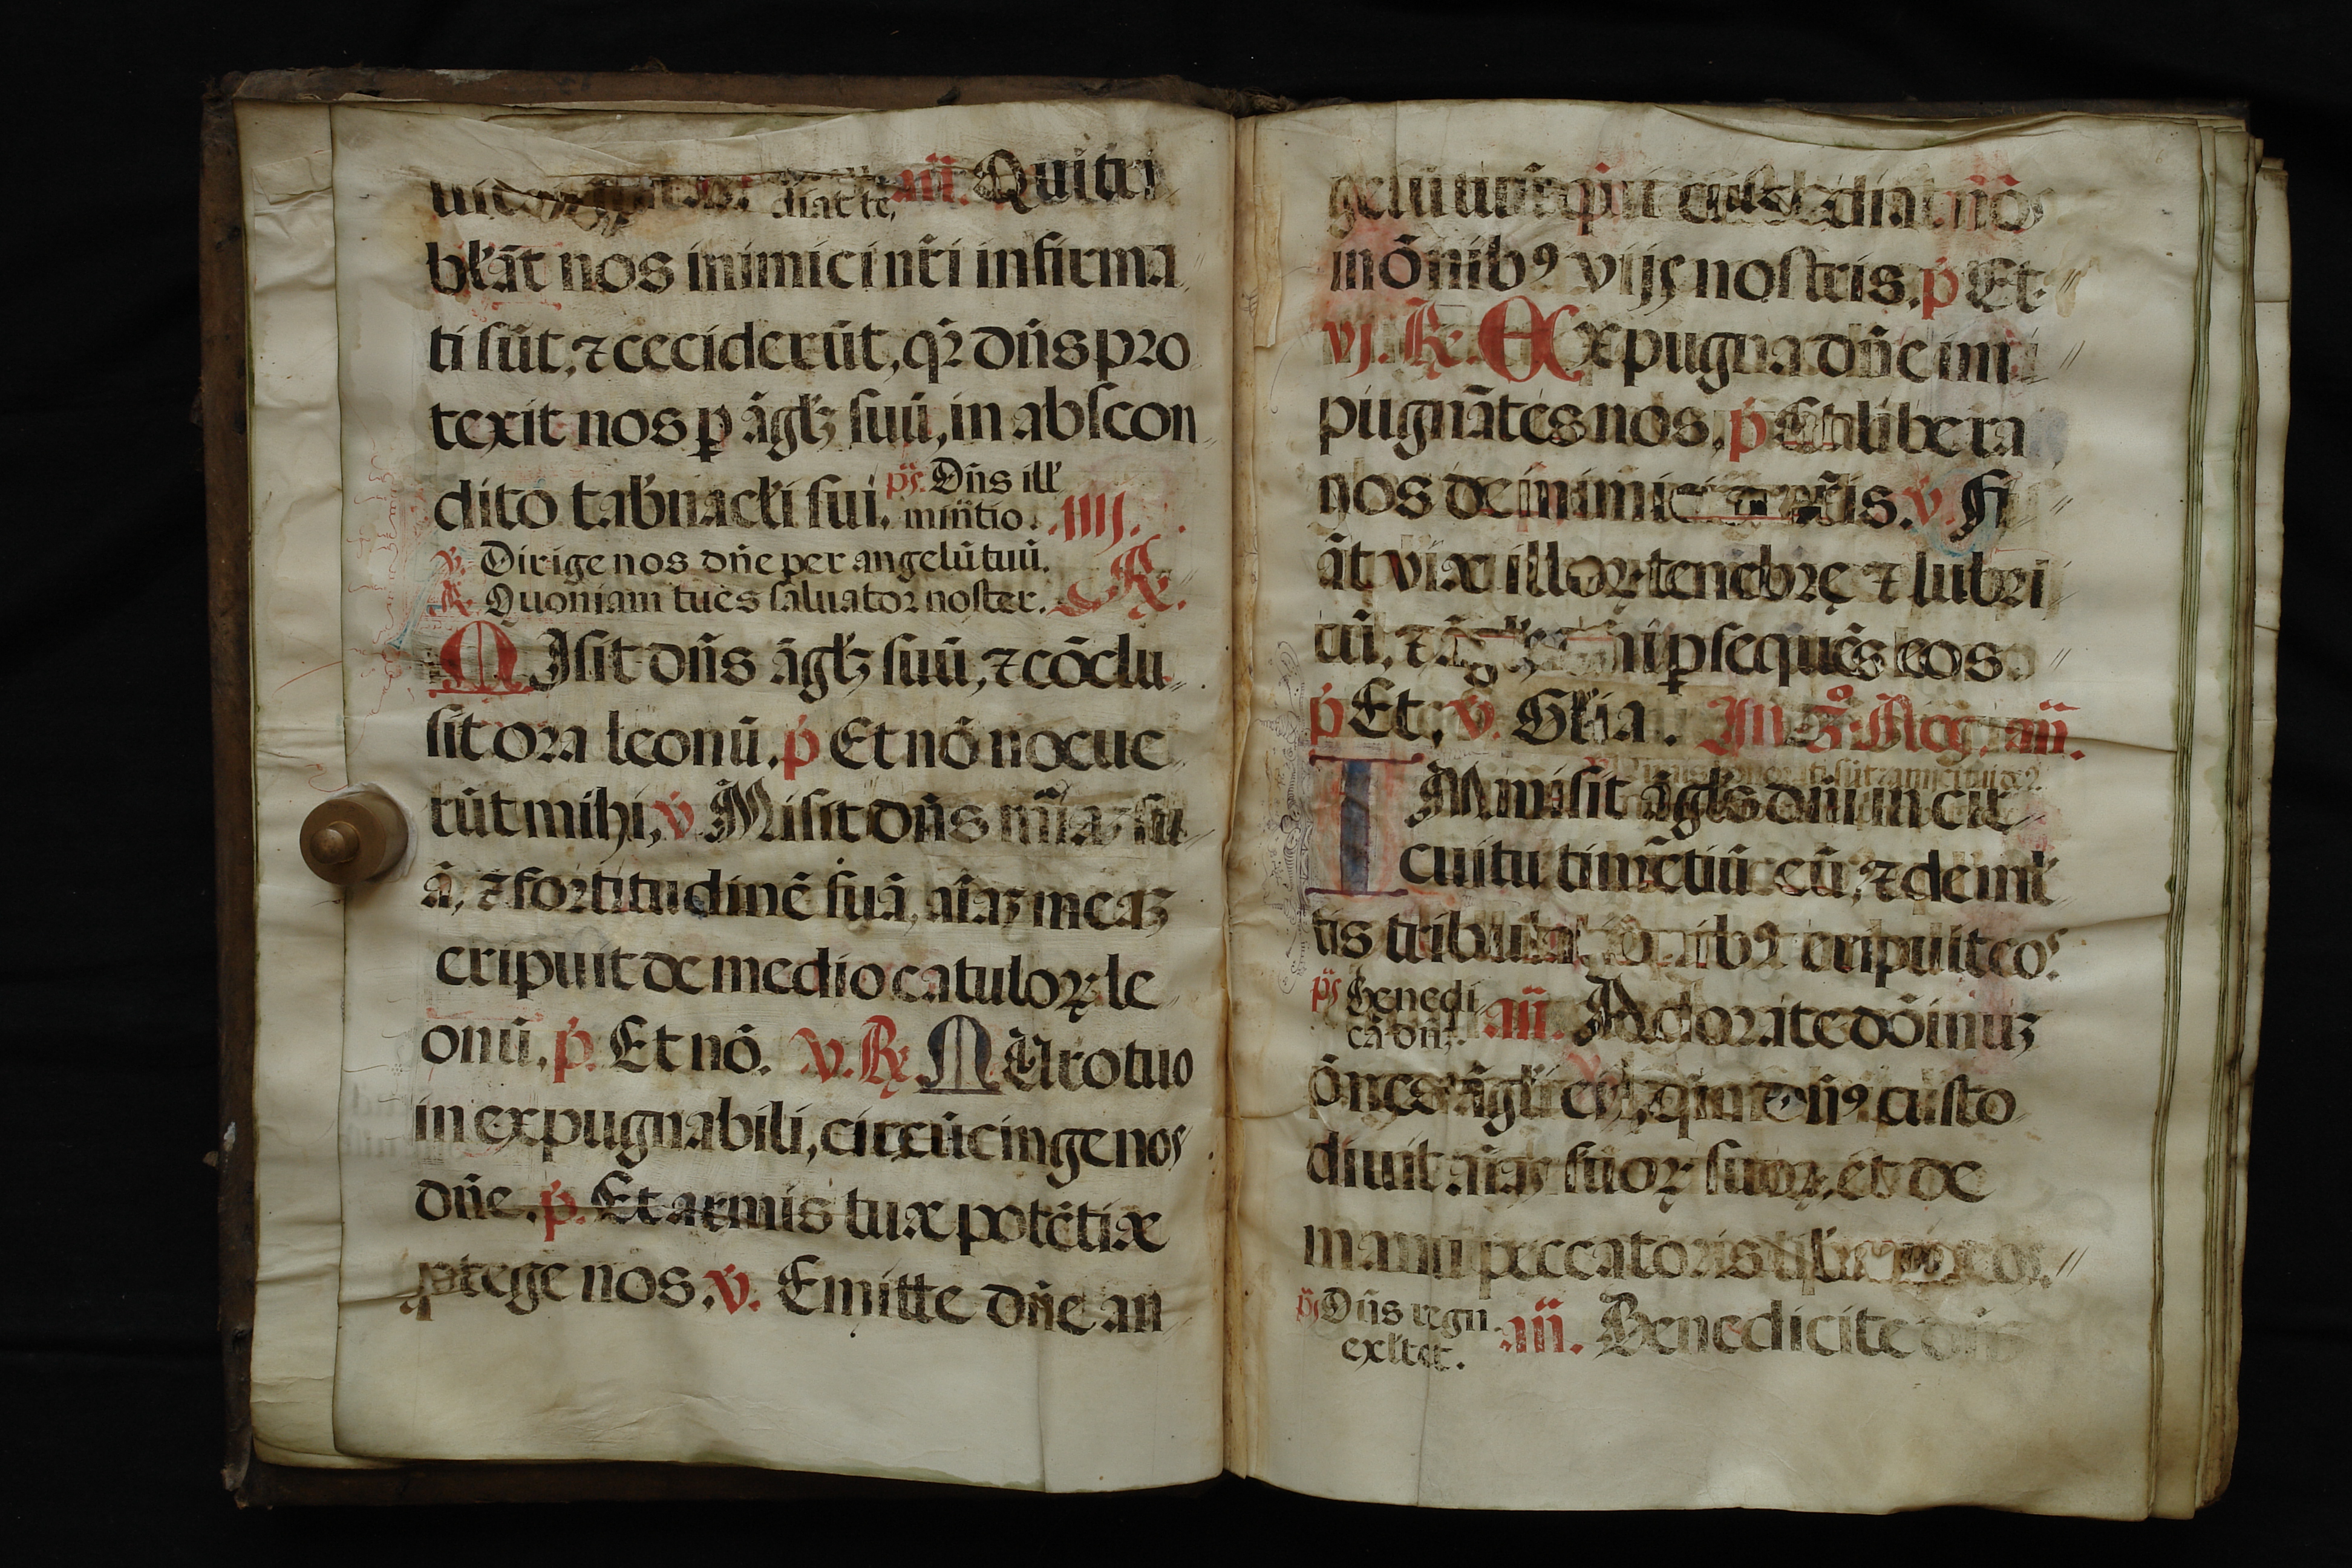 diat te, añ. Qui tri
bľāt nos inimici nr̄i infirma
ti sūt, ⁊ ceciderūt, qr̄ dn̄s pro
texit nos ꝑ āgľꝫ suū, in abscon
dito tab̄nacľi sui. ps̄. Dn̄s ill'
min̄tio. IIIJ.
℣. Dirige nos dn̄e per angelū tuū.
℟. Quoniam tu es saluator noster. ℟.
MIsit dn̄s āgľꝫ suū, ⁊ cōclu
sit ora leonū. p̄ Et nō nocue
rūt mihi, ℣. Misit dn̄s mīaꝫ su
ā, ⁊ fortitudinē suā, aīaꝫ meaꝫ
eripuit de medio catuloꝝ le
onū. p̄. Et nō. V. ℟. MUro tuo
inexpugnabili, circūcinge nos
dn̄e. p̄. Et armis tuæ potētiæ
ꝓtege nos. ℣. Emitte dn̄e an
gelū tuū qui custodiat nos
in ōnibꝰ vijs nostris. p̄ Et.
VJ. ℟. EXpugna dn̄e im
pugnātes nos. p̄ Et libera
nos de inimicis nr̄is. ℣. Fi
āt viæ illoꝝ tenebrę ⁊ lubri
cū, ⁊ āgľs dn̄i ꝑsequēs eos.
p̄ Et. ℣. Gľia. In 3.º Noc. añ.
IMmisit āgľs dn̄i in cir
cuitu timētiū eū, ⁊ de mľ
tis tribulaōnibꝰ eripuit eos.
ps̄ Benedi
cā dn̄ꝫ. añ. Adorate dōinuꝫ
ōnes āgľi eiꝰ, qm̄ dn̄s custo
diuit aīas suoꝝ suoꝝ, et de
manu peccatoris eos.
ps̄ Dn̄s regn.
exľtet. añ. Benedicite dn̄o